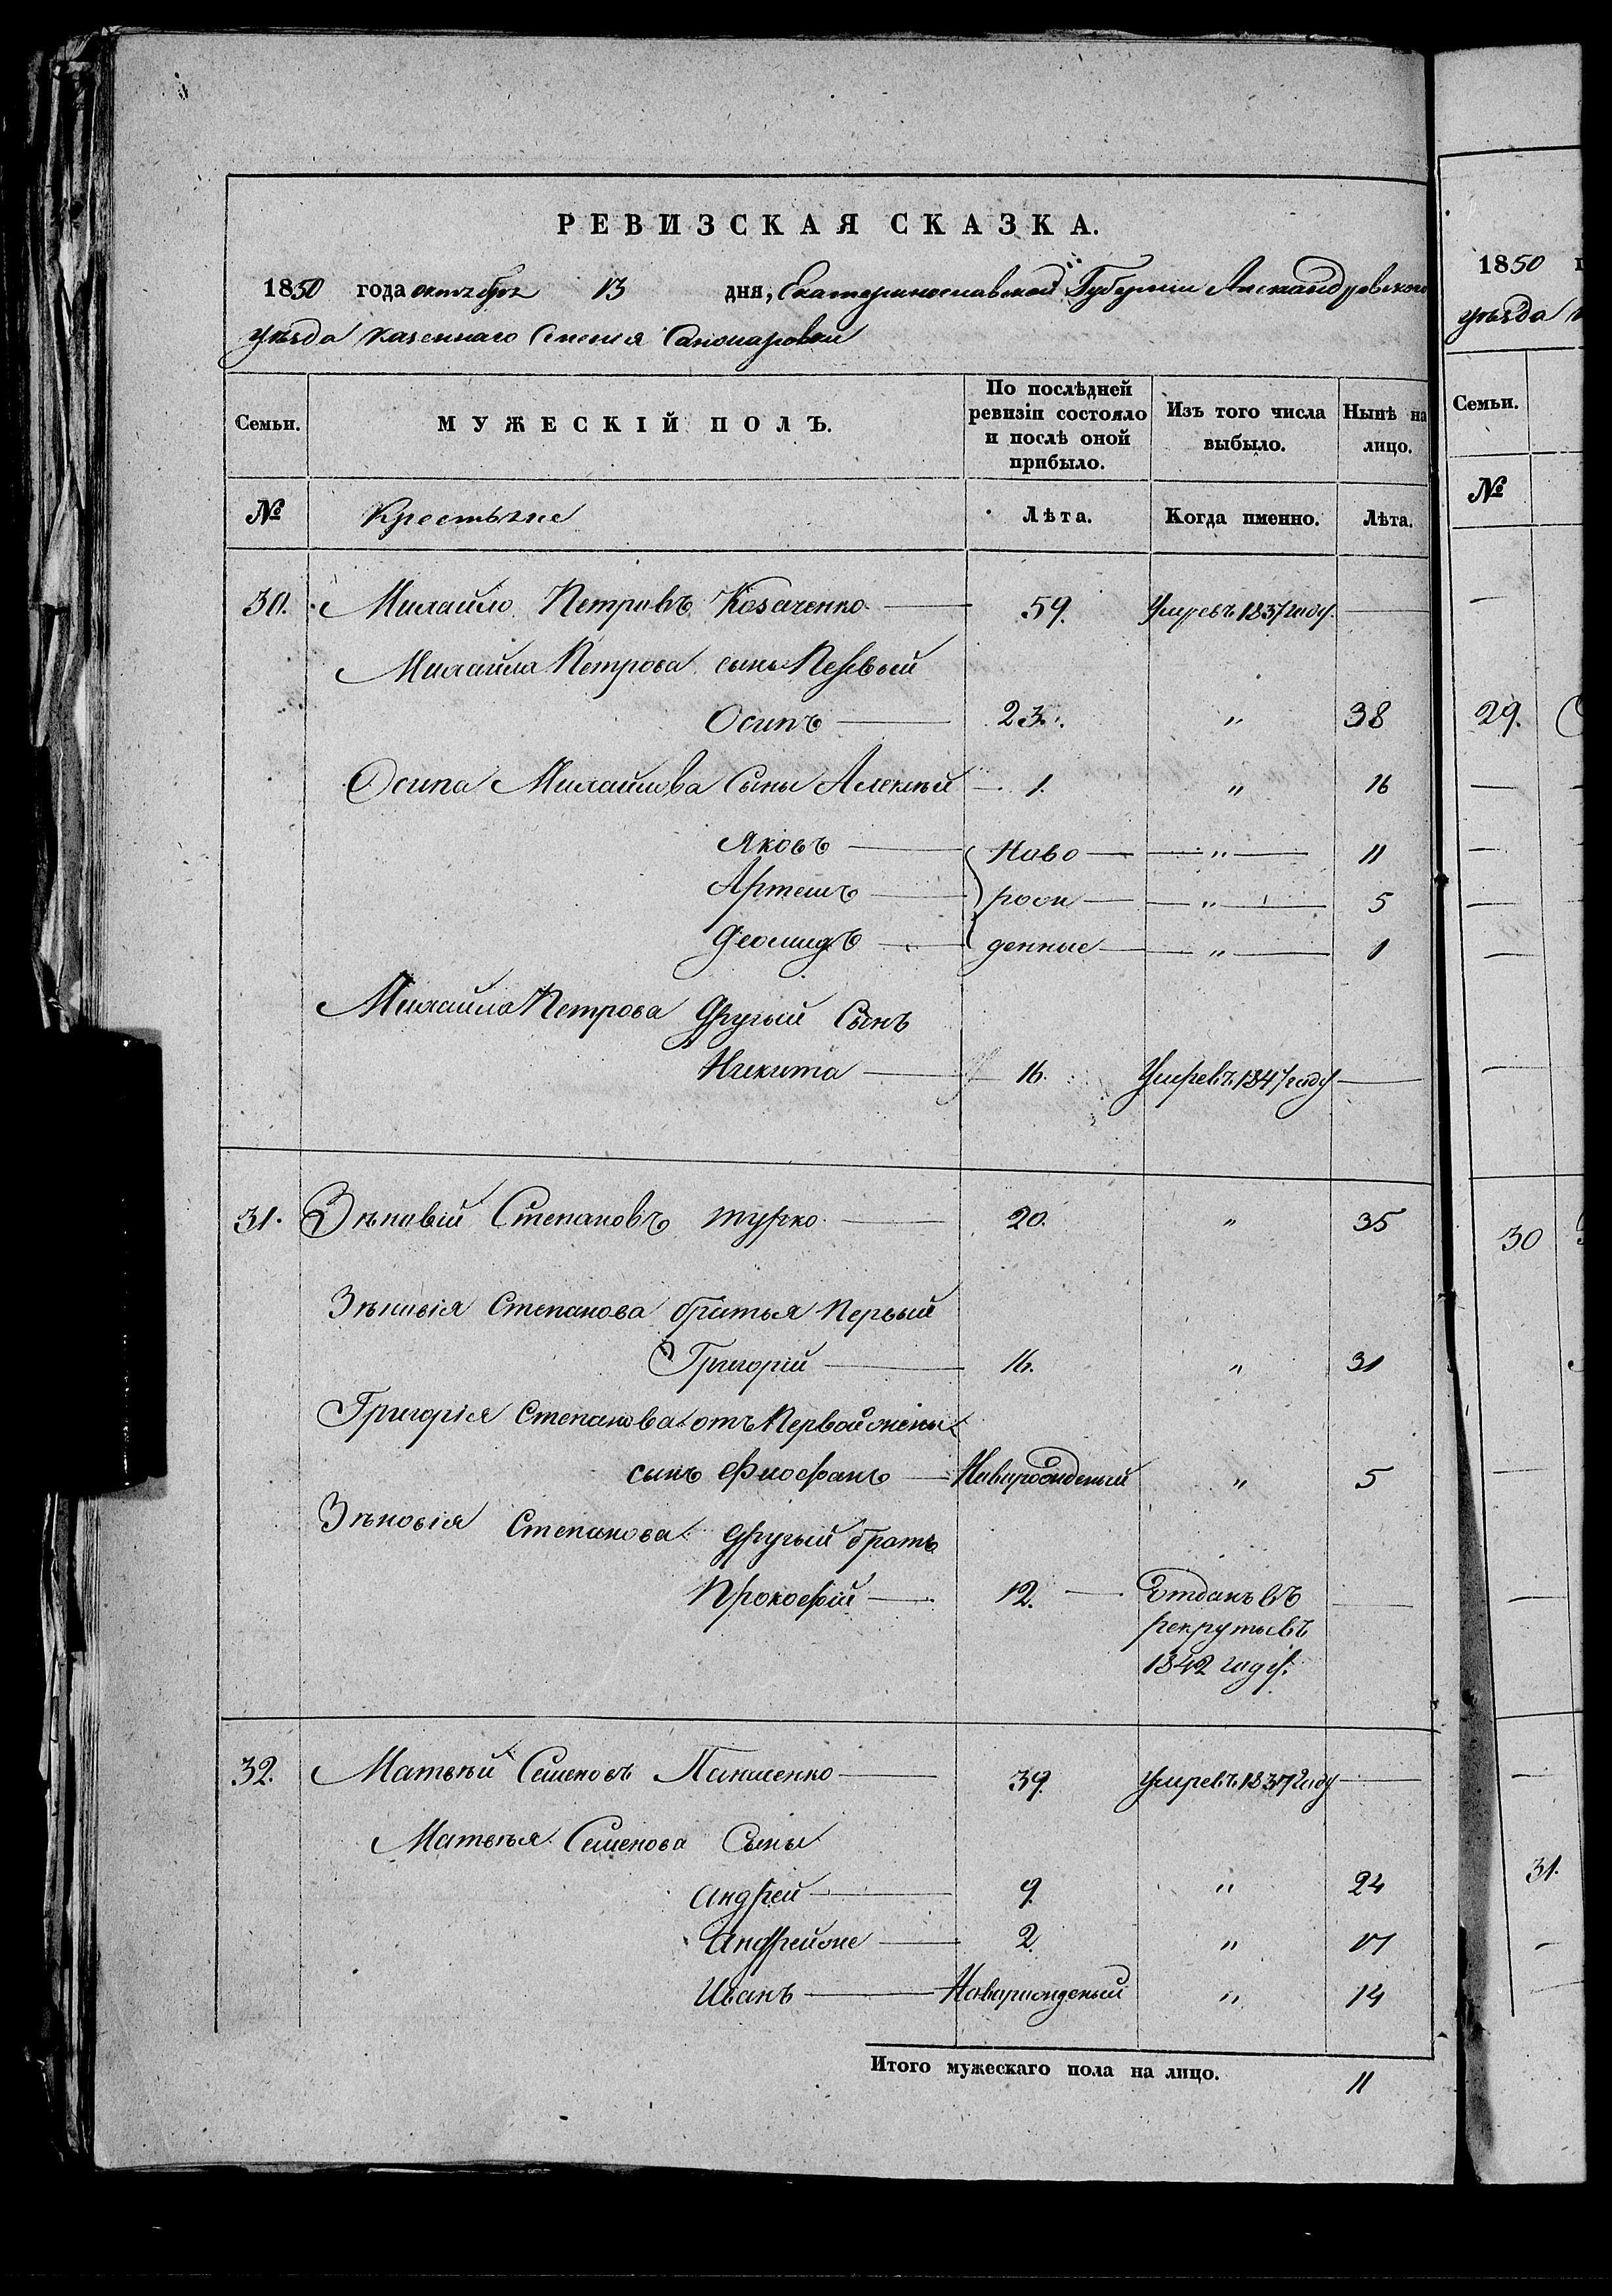 РЕВИЗСКАЯ СКАЗКА.
1850 года октября 13 дня, Екатеринославской Губернии Александровского
уѣзда казеннаго Селенія
Семьи. МУЖЕСКІЙ ПОЛЪ. По послѣдней ревизіи состояло и послѣ оной прибыло. Изъ того числа выбыло. Нынѣ на лицо.
№ Крестьяне Лѣта. Когда именно. Лѣта.
30. Михайло Петровъ Козаченко 59. Умревъ 1837 году.
Михайла Петрова сыны Первый
Осипъ 23. " 38
Осипа Михайлова Сыны Алексѣй 1. " 16
Яковъ Ново " 11
Артемъ рож " 5
Деомидъ денные " 1
Михайла Петрова Другый Сынъ
Никита 16. Умревъ 1847 году
31. Зѣновій Степановъ Турко 20. " 35
Зѣновія Степанова братья Первый
Григорій 16. " 31
Григорія Степанова отъ Первой жены
сынъ Феофанъ Новорожденый " 5
Зѣновія Степанова Другый братъ
Прокофій 12. Отданъ въ
рекруты въ
1842 году.
32. Матвѣй Семеновъ 39. Умревъ 1837 году
Матвѣя Семенова Сыны
Андрей 9. " 24
Андрей же 2. " 17
Иванъ Новорожденый " 14
Итого мужескаго пола на лицо. 11
1850
уѣзда
Семьи.
№
29.
30
31.